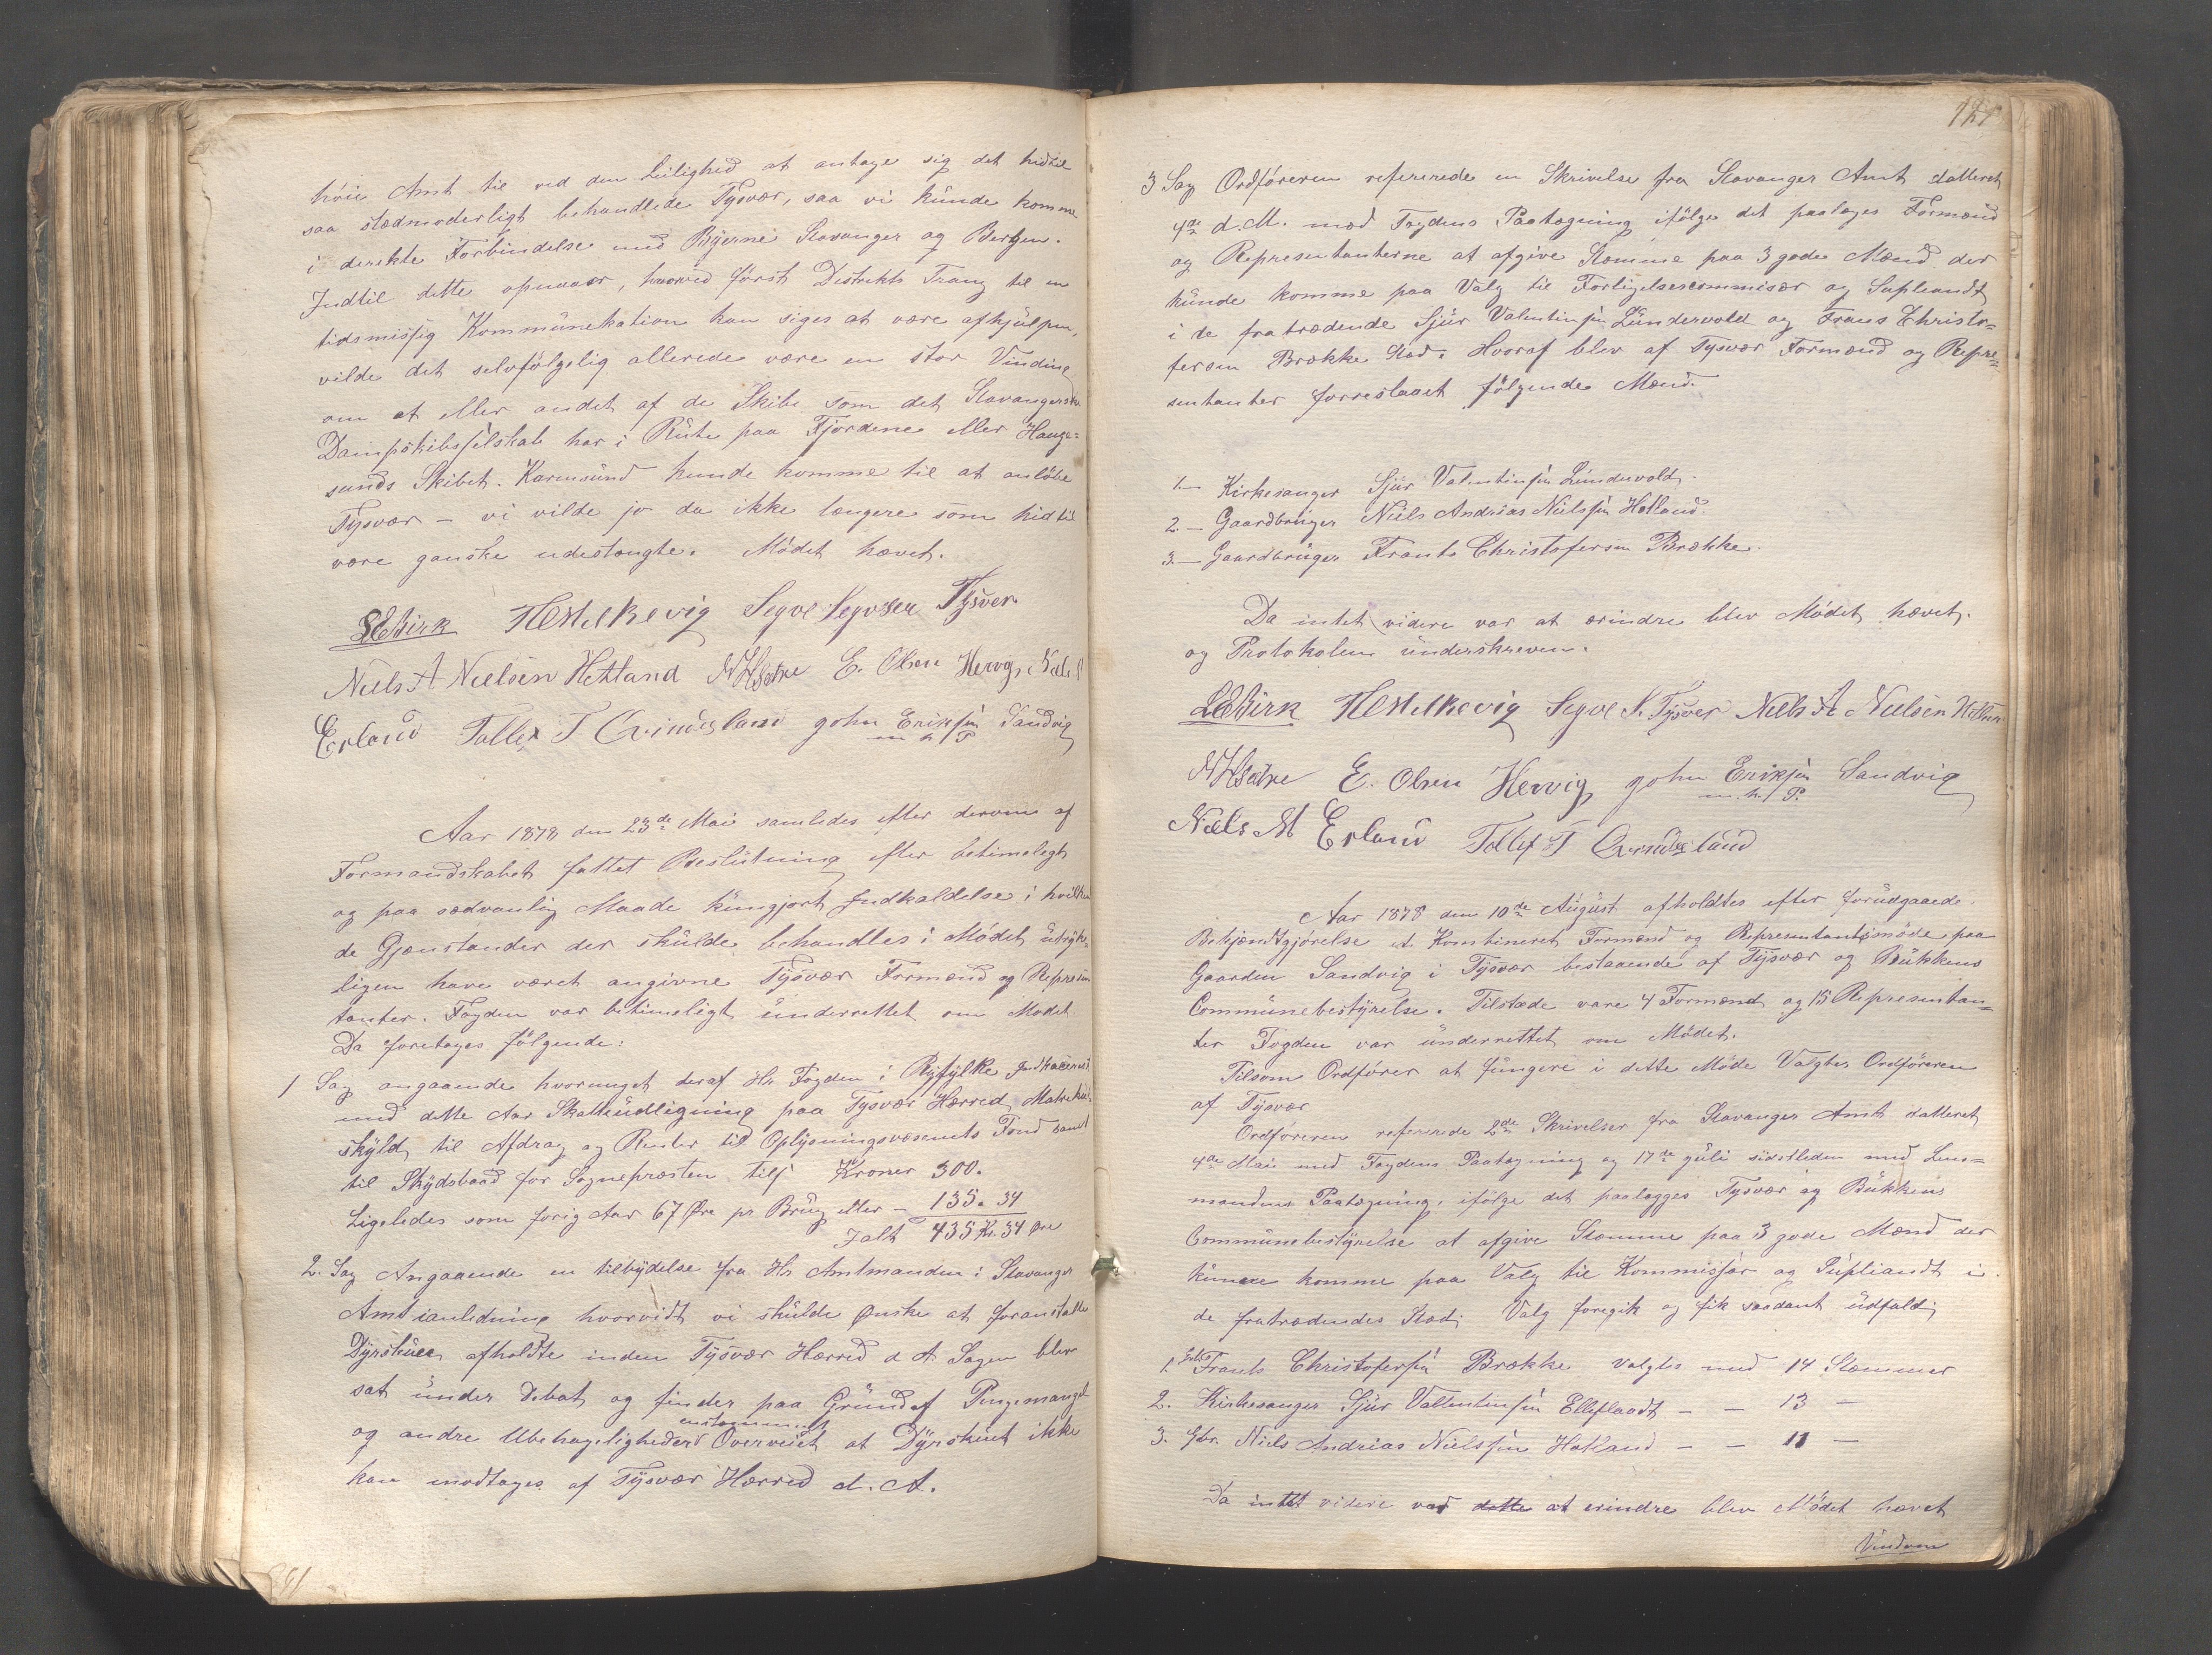 höie Amt til ved den Leilighed at antage sig det hidtil
saa stedmoderligt behandlede Tysvær, saa vi kunde komme
i derekte Forbindelse med Byerne Stavanger og Bergen.
Indtil dette opnaaes, hvorved först Distrikts Trang til en
tidsmissig Kommunekation kan siges at være afhjülpen,
vilde det selvfölgelig allerede være en stor Vinding
om et eller andet af de Skibe som det Stavangerske
Dampskibsselskab har i Rute paa Fjordene eller Hauge-
sunds Skibet. Karmsund kunde komme til at anlöbe
Tysvær – vi vilde jo da ikke længere som hidtil
være ganske udestængte. Mödet hævet.
Segve Segvsen Tysver
Niels A Nielsen Hetland E. Olsen Hervig, Niels M
Erland Tollef T Grinnesland John Eriksen Sandvig
m. h. P
Aar 1878 den 23de Mai samledes efter derom af
Formandskabet fattet Beslutning efter betimeligt
og paa sædvanlig Maade kungjort Indkaldelse i hvilken
de Gjenstander der skulde behandles i Mödet utryk-
ligen have været angivne Tysvær Formænd og Represen
tanter. Fogden var betimeligt underrettet om Mödet
Da foretoges fölgende:
1 Sag angaaende hvormeget deraf Hr Fogden i Ryfylke
med dette Aar Skatteudligning paa Tysvær Herred Matrikul
skyld, til Afdrag og Renter til Oplysningsvæsenets Fond samt
til Skydsbaad for Sognepræsten tils Kroner 300.
Ligeledes som forig Aar 67 Øre pr Brug eller – 135. 34
Ialt 435 Kr. 34 Øre
2. Sag Angaaende en tilbydelse fra Hr Amtmanden i Stavanger
Amt ianledning hvorvidt vi skulde Ønske at foranstalte
Dyrskuer afholdte inden Tysvær Herred d A. Sagen blev
sat under Debat og finder paa Grund af Pengemangel
og andre Ubehageligheder enstemmigt Overveiet at Dyrskuet ikke
kan modtages af Tysvær Herred d. A.
3 Sag Ordföreren refererede en Skrivelse fra Stavanger Amt datteret
4de d. M. med Fogdens Paategning ifölge det paalages Formænd
og Representanterne at afgive Stemme paa 3 gode Mænd der
kunde komme paa Valg til Forligelsescommisær og Supleandt
i de fratrædende Sjur Valentinsen Lundervold og Frans Christo-
fersen Brække Sted. Hvoraf blev af Tysvær Formænd og Repre-
sentanter forreslaaet fölgende Mænd.
1.– Kirkesanger Sjur Valentinsen Lundervold.
2.– Gaardbruger Niels Andrias Nielsen Hetland.
3.– Gaardbruger Frants Christofersen Brække.
Da intet videre var at erindre blev Mödet hævet.
og Protokolen underskreven.
Segve S. Tysver Niels A Nielsen
E. Olsen Hervig, John Eriksen Sandvig
m. h. P.
Niels M Erland Tollef T Grinnesland
Aar 1878 den 10de August afholdtes efter forudgaaede
Bekjendtgjørelse et Kombineret Formænd og Representantsmöde paa
Gaarden Sandvig i Tysvær bestaaende af Tysvær og Bukkens
Communebestyrelse. Tilstæde vare 4 Formænd og 15 Representan-
ter Fogden var underrettet om Mödet.
Tilsom Ordfører at fungere i dette Möde Valgtes Ordföreren
af Tysvær
Ordføreren refererede 2de Skrivelser fra Stavanger Amt datteret
4de Mai med Fogdens Paategning og 17de Juli sidstleden med Lens-
mandens Paategning, ifölge det paalegges Tysvær og Bukkens
Communebestyrelse at afgive Stemme paa 3 gode Mænd der
kunne komme paa Valg til Kommissær og Supliandt i
de fratrædendes Sted. Valg foregik og fik saadant udfald;
1. Gbr Frants Christofersen Brække valgtes med 14 Stemmer
2. Kirkesanger Sjur Vallentinsen – – 13 –
3. Gbr. Niels Andrias Nielsen Hetland – – 11 –
Da intet videre var dette at erindre blev Mödet hævet